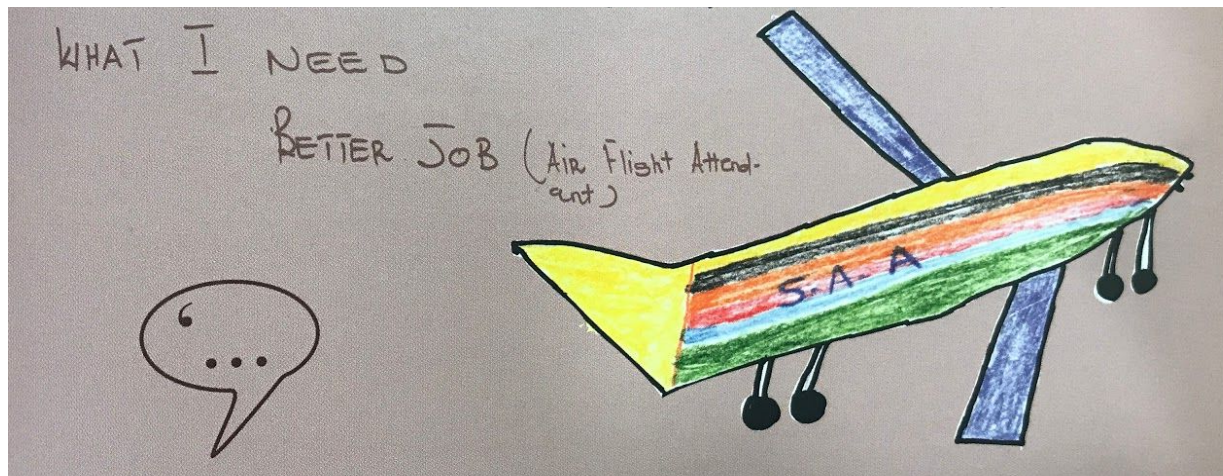 WHAT I NEED
BETTER JOB (Air Flight Attend-
ant)
S.A.A